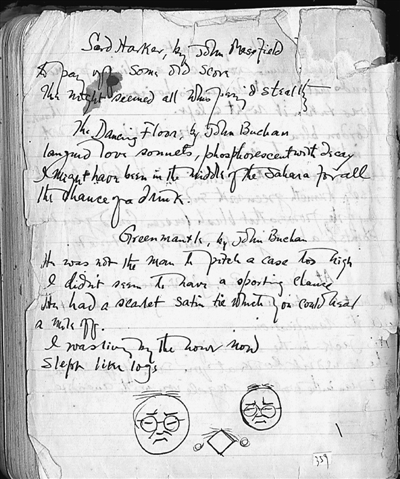 Sard Harker, by John Masefield
To pay off some old score
The night seemed all whispering & stealth
The Dancing Floor, by John Buchan
languid love sonnets, phosphorescent with decay
I might have been in the middle of the Sahara for all
the chance of a drink.
Greenmantle, by John Buchan
He was not the man to pitch a case too high
I didn't seem to have a sporting chance
He had a scarlet satin tie which you could hear
a mile off.
I was living by the hour now
Slept like logs
339